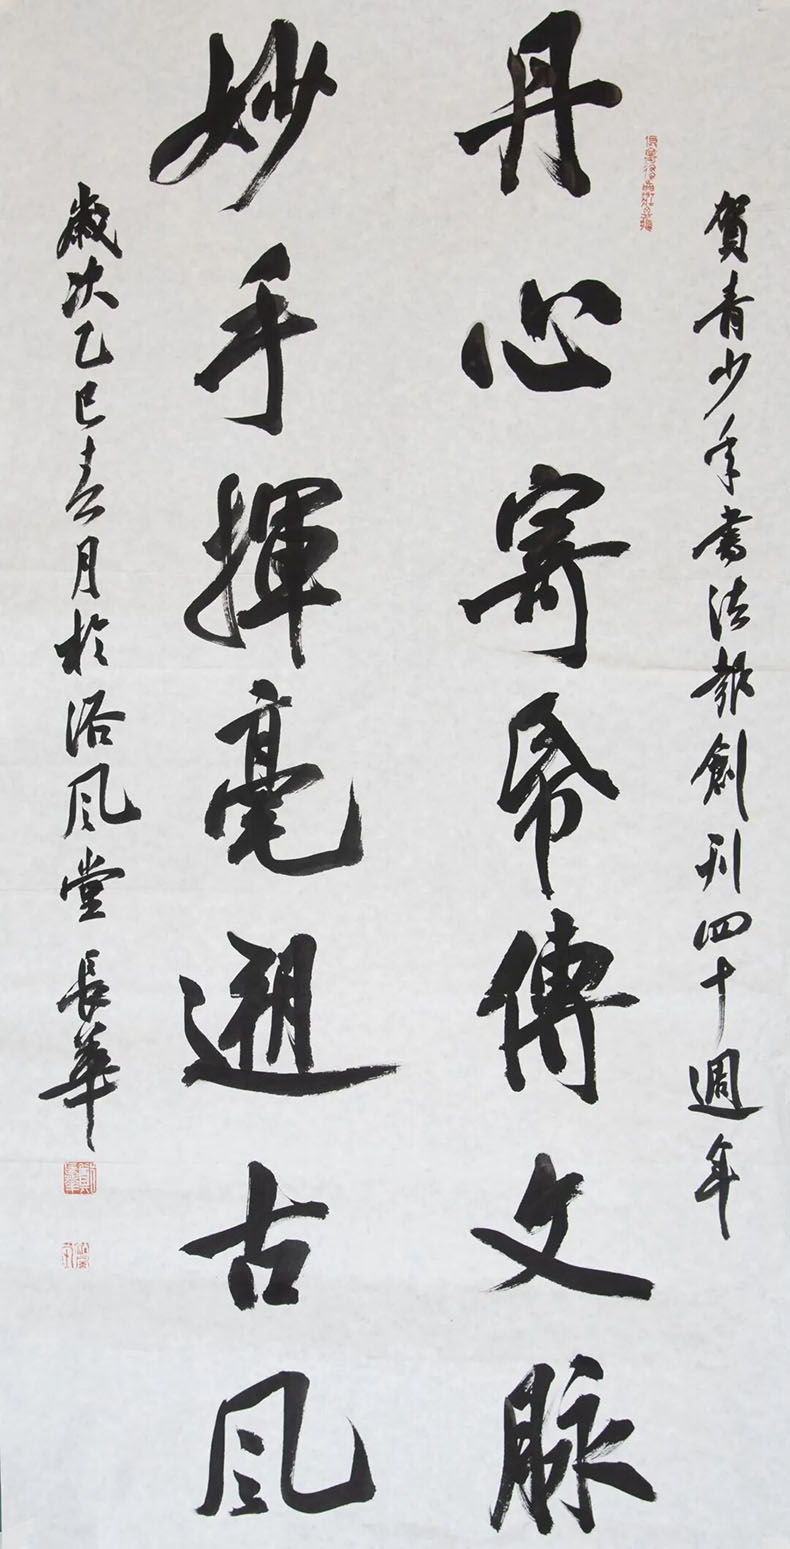 賀青少年書法報創刊四十週年
丹心寄帋傳文脉
妙手揮毫遡古風
歲次乙巳春月於洛風堂長華